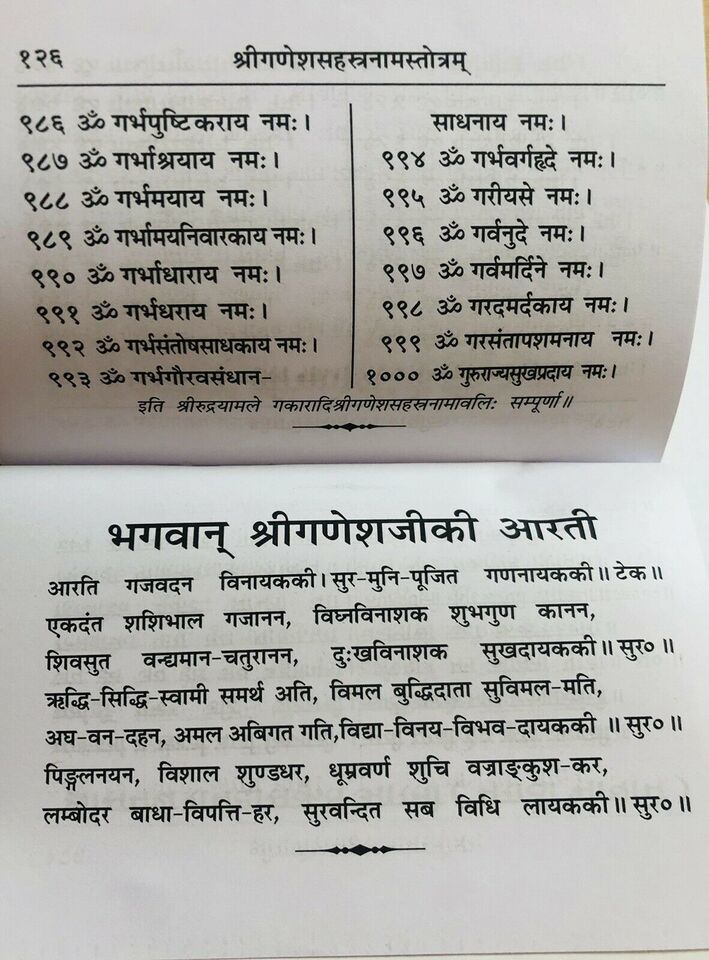 १२६ श्रीगणेशसहस्त्रनामस्तोत्रम्
९८६ ॐ गर्भपुष्टिकराय नमः।
९८७ ॐ गर्भाश्रयाय नमः।
९८८ ॐ गर्भमयाय नमः।
९८९ ॐ गर्भामयनिवारकाय नमः।
९९० ॐ गर्भाधाराय नमः।
९९१ ॐ गर्भधराय नमः।
९९२ ॐ गर्भसंतोषसाधकाय नमः।
९९३ ॐ गर्भगौरवसंधान-
साधनाय नमः।
९९४ ॐ गर्भवर्गहृदे नमः।
९९५ ॐ गरीयसे नमः।
९९६ ॐ गर्वनुदे नमः।
९९७ ॐ गर्वमर्दिने नमः।
९९८ ॐ गरदमर्दकाय नमः।
९९९ ॐ गरसंतापशमनाय नमः।
१००० ॐ गुरुराज्यसुखप्रदाय नमः।
इति श्रीरुद्रयामले गकारादिश्रीगणेशसहस्त्रनामावलिः सम्पूर्णा॥
भगवान् श्रीगणेशजीकी आरती
आरति गजवदन विनायककी। सुर-मुनि-पूजित गणनायककी॥ टेक॥
एकदंत शशिभाल गजानन, विघ्नविनाशक शुभगुण कानन,
शिवसुत वन्द्यमान-चतुरानन, दुःखविनाशक सुखदायककी॥ सुर०॥
ऋद्धि-सिद्धि-स्वामी समर्थ अति, विमल बुद्धिदाता सुविमल-मति,
अघ-वन-दहन, अमल अबिगत गति,विद्या-विनय-विभव-दायककी॥ सुर०॥
पिङ्गलनयन, विशाल शुण्डधर, धूम्रवर्ण शुचि वज्राङ्कुश-कर,
लम्बोदर बाधा-विपत्ति-हर, सुरवन्दित सब विधि लायककी॥ सुर०॥